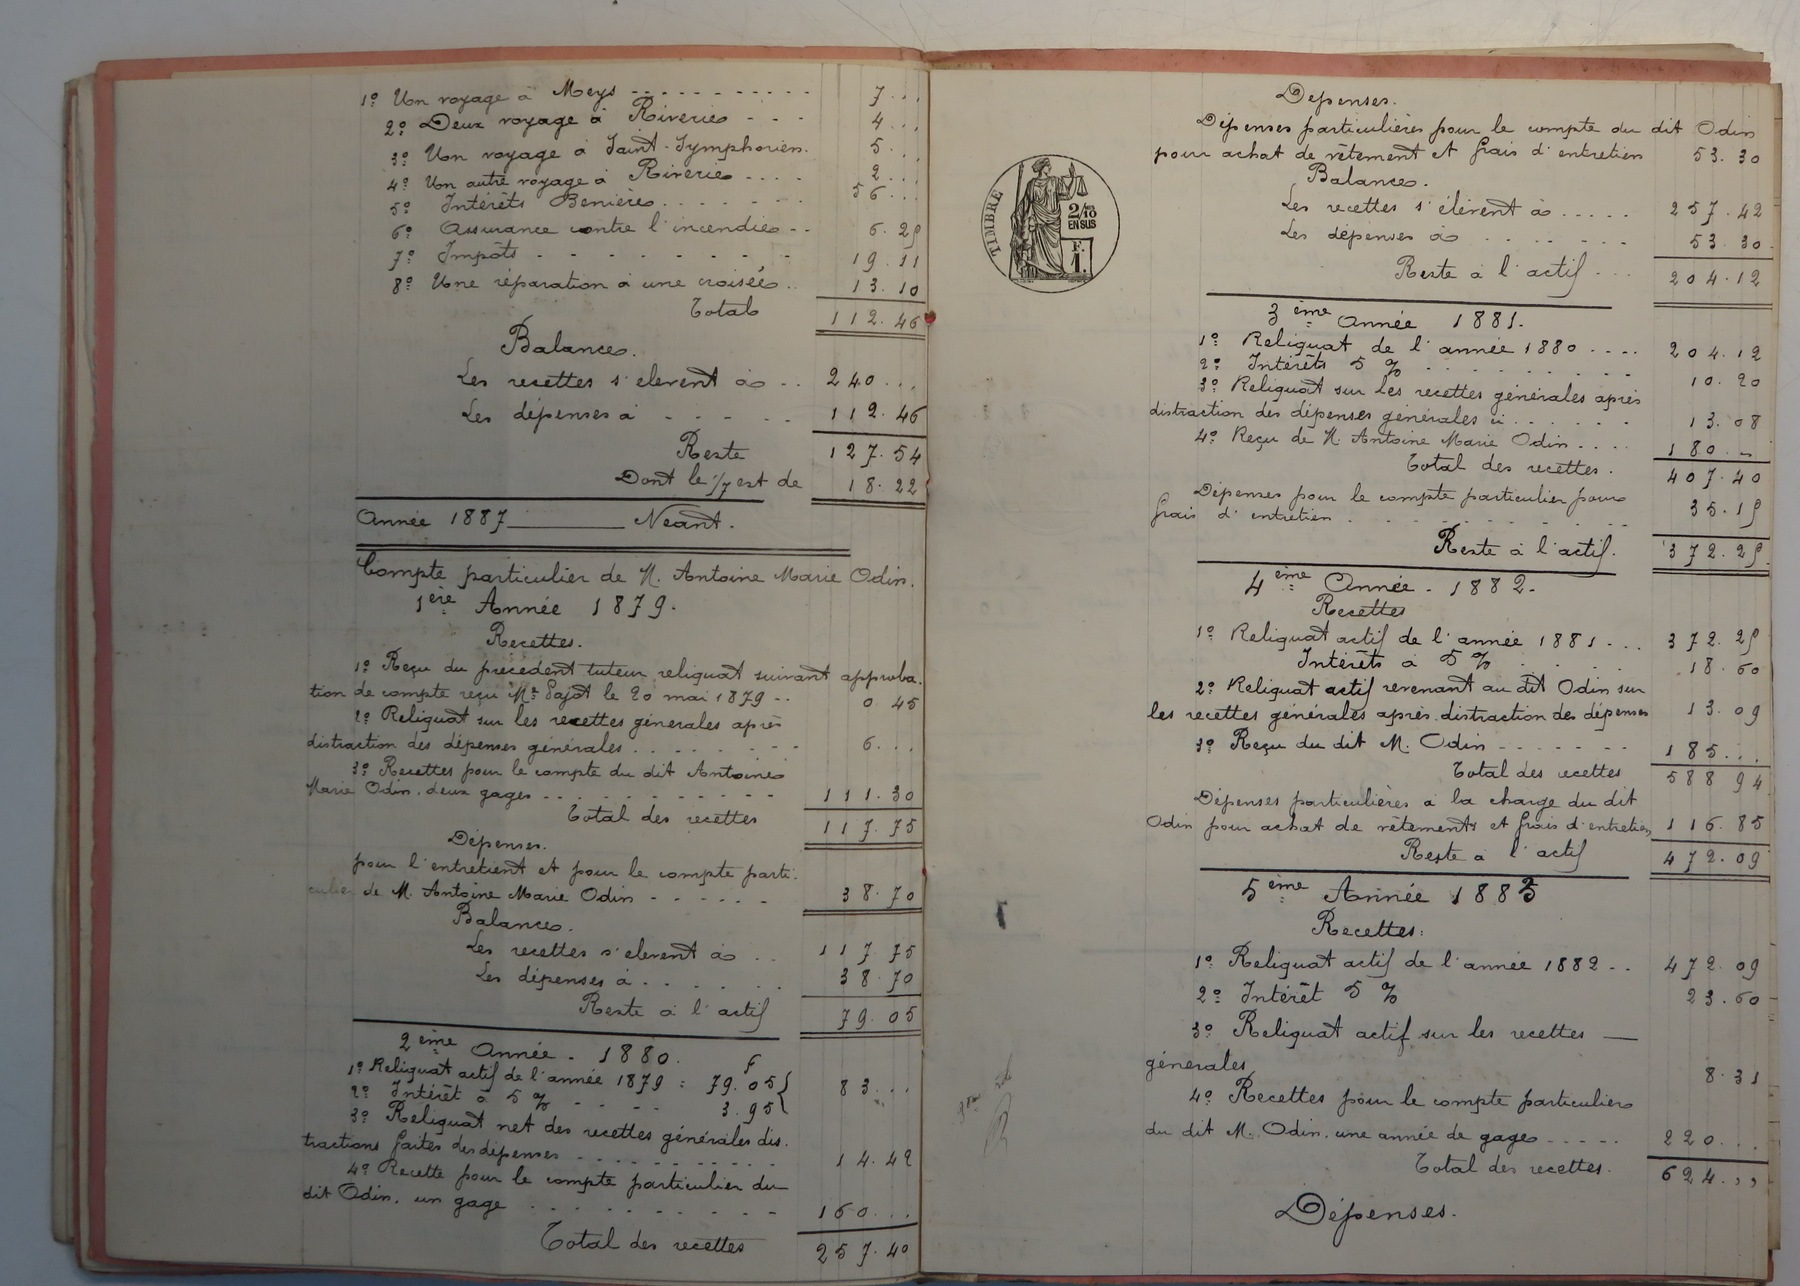 1º Un voyage à Meys - - - - - - - - - - 7...
2º Deux voyage à Riveries - - - 4...
3º Un voyage à Saint-Symphorien. 5...
4º Un autre voyage à Riveries - - - - 2...
5º Intérêts Benières . . . . . . . 56...
6º Assurance contre l'incendies - - 6.25
7º Impôts - - - - - - - - - 19.11
8º Une réparation à une croisées .. 13.10
Total 112.46
Balances.
Les recettes s'elevent à .. 240...
Les dépenses à - - - - - 112.46
Reste 127.54
Dont le 1/7 est de 18.22
Année 1887 ______ Néant.
Compte particulier de M. Antoine Marie Odin.
1ère Année 1879.
Recettes.
1º Reçu du precedent tuteur reliquat suivant approba.
tion de compte reçu Me Pajot le 20 mai 1879 .. 0.45
2º Reliquat sur les recettes génerales après
distraction des dépenses générales . . . . . . - - 6...
3º Recettes pour le compte du dit Antoine
Marie Odin. deux gages - - - - - - - - - - 111.30
Total des recettes 117.75
Dépenses.
pour l'entretient et pour le compte parti-
culier de M. Antoine Marie Odin - - - - - - 38.70
Balances.
Les recettes s'elevent à .. 117.75
Les dépenses à . . . . . . 38.70
Reste à l'actif 79.05
2ème Année - 1880. f
1º Reliquat actif de l'année 1879 : 79.05 } 83...
2º Intérêt à 5 % - - - - 3.95
3º Reliquat net des recettes générales dis.
tractions faites des dépenses - - - - - - - - - - 14.42
4º Recette pour le compte particulier du
dit Odin. un gage - - - - - - - - - - 160...
Total des recettes 257.40
TIMBRE
2/10 EN SUS
F. 1.
Dépenses.
Dépenses particulières pour le compte du dit Odin
pour achat de vêtement et frais d'entretien 53.30
Balances.
Les recettes s'élèvent à ..... 257.42
Les dépenses à ....... 53.30
Reste à l'actif ... 204.12
3ème Année 1881.
1º Reliquat de l'année 1880 .... 204.12
2º Intérêts 5 % ......... 10.20
3º Reliquat sur les recettes générales après
distraction des dépenses générales ci ....... 13.08
4º Reçu de M. Antoine Marie Odin .... 180.-
Total des recettes. 407.40
Dépenses pour le compte particulier pour
frais d'entretien ............ 35.15
Reste à l'actif. 372.25
4ème Année - 1882.
Recettes
1º Reliquat actif de l'année 1881 ... 372.25
Intérêts à 5 % .... 18.60
2º Reliquat actif revenant au dit Odin sur
les recettes générales après distraction des dépenses 13.09
3º Reçu du dit M. Odin - - - - - - - 185...
Total des recettes 588 94
Dépenses particulières à la charge du dit
Odin pour achat de vêtements et frais d'entretien 116.85
Reste à l'actif 472.09
5ème Année 1883
Recettes:
1º Reliquat actif de l'année 1882 .. 472.09
2º Intérêt 5 % 23.60
3º Reliquat actif sur les recettes —
génerales 8.31
4º Recettes pour le compte particuliers
du dit M. Odin. une année de gages ..... 220...
Total des recettes. 624.,,
Dépenses.